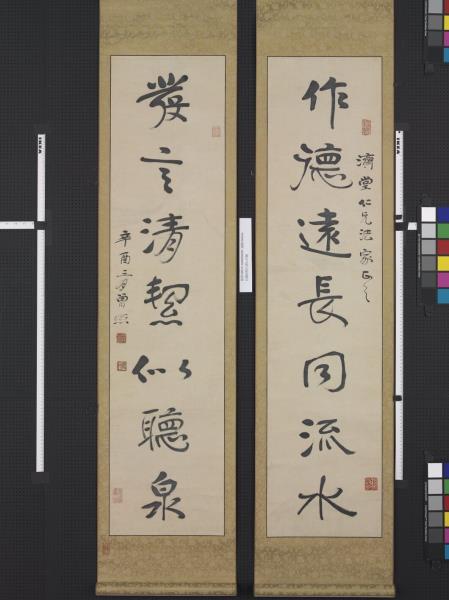 作德遠長同流水
濟堂仁兄法家正之
發言清絜似聽泉
辛酉三月曾熙